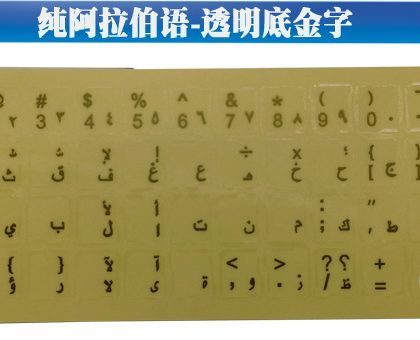 纯阿拉伯语-透明底金字
# $ % ^ & * ( )
٢ 3 ٣ 4 ٤ 5 ٥ 6 ٦ 7 ٧ 8 ٨ 9 ٩ 0 ٠
لإ إ ÷ x ؛ { }
ث ق ف غ ع ه خ ح [ ج ]
لأ أ : "
ي ب ل ا ت ن م ; ك ط
{ } لآ آ < > ? ؟ +
ؤ ر لا ى ة , و . ز / ظ =